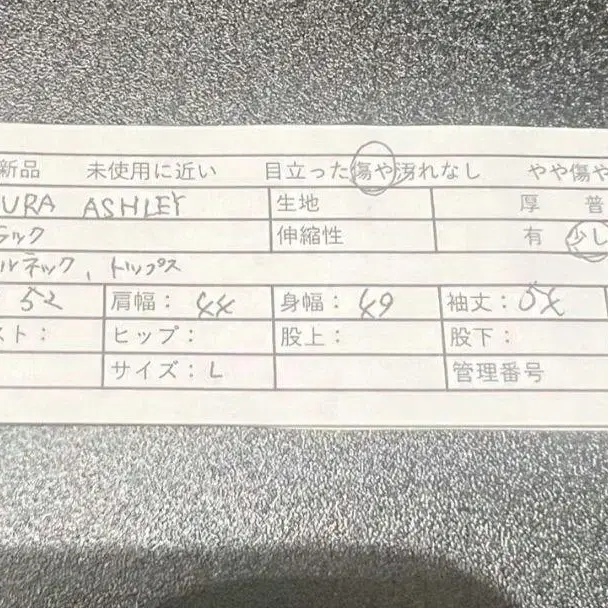 新品 未使用に近い 目立った傷や汚れなし やや傷や
URA ASHLEY 生地 厚 普
ラック 伸縮性 有 少し
ルネック、トップス
52 肩幅: 44 身幅: 49 袖丈:
スト: ヒップ: 股上: 股下:
サイズ: L 管理番号